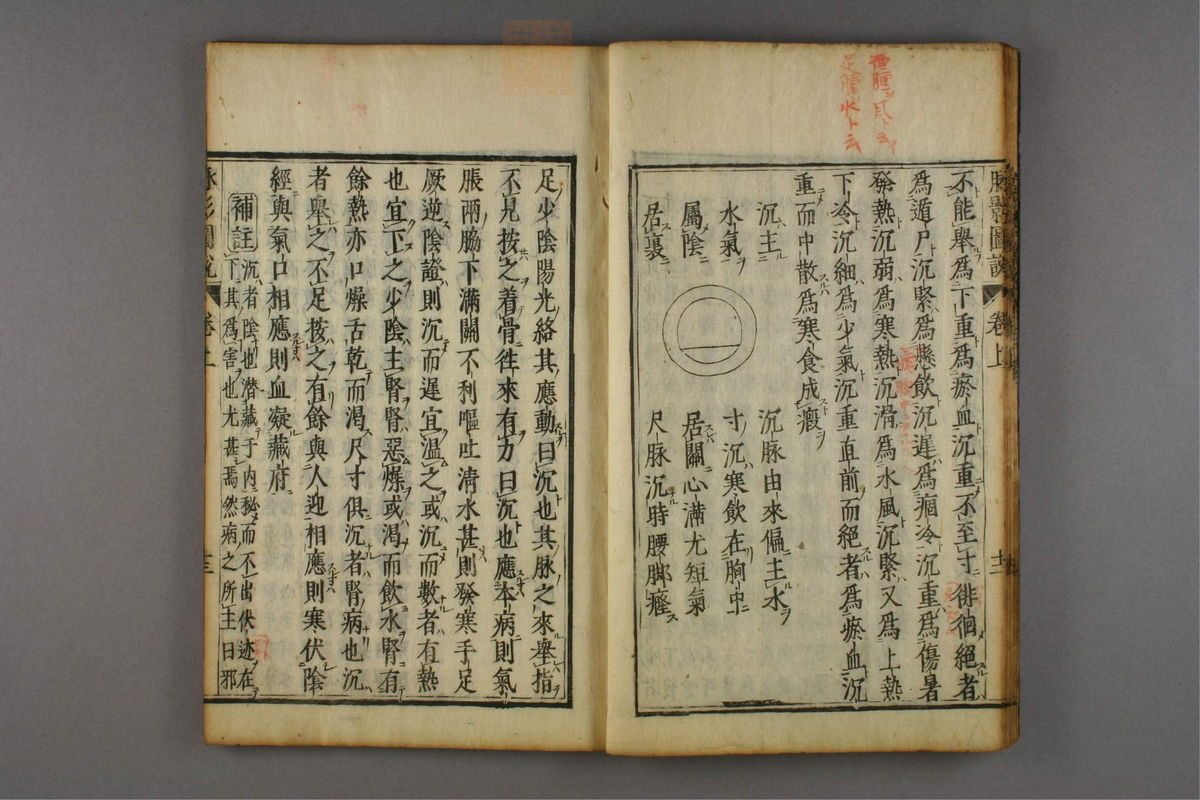 脉影圖說 卷上 十二
不能舉爲下重爲瘀血沉重不至寸徘徊絕者
爲遁尸沉緊爲懸飲沉遲爲痼冷沉重爲傷暑
發熱沉弱爲寒熱沉滑爲水風沉緊又爲上熱
下冷沉細爲少氣沉重直前而絕者爲瘀血沉
重而中散爲寒食成瘕
沉主
水氣
屬陰
居裏
沉脉由來偏主水
寸沉寒飲在胸中
居關心滿尤短氣
尺脉沉時腰脚瘇
瘇腫ヲ風ト云イ
足腫水ト云
足少陰陽光絡其應動曰沉也其脉之來舉指
不見按之着骨往來有力曰沉也應本病則氣
脹兩脇下滿關不利嘔吐清水甚則發寒手足
厥逆陰證則沉而遲宜溫之或沉而數者有熱
也宜下之少陰主腎腎惡燥或渴而飲水腎有
餘熱亦口燥舌乾而渴尺寸俱沉者腎病也沉
者舉之不足按之有餘與人迎相應則寒伏陰
經與氣口相應則血凝藏府
補註 沉者陰也潛藏于內秘而不出伏迹在
下其爲害也尤甚焉然病之所主曰邪
脉影圖說 卷上